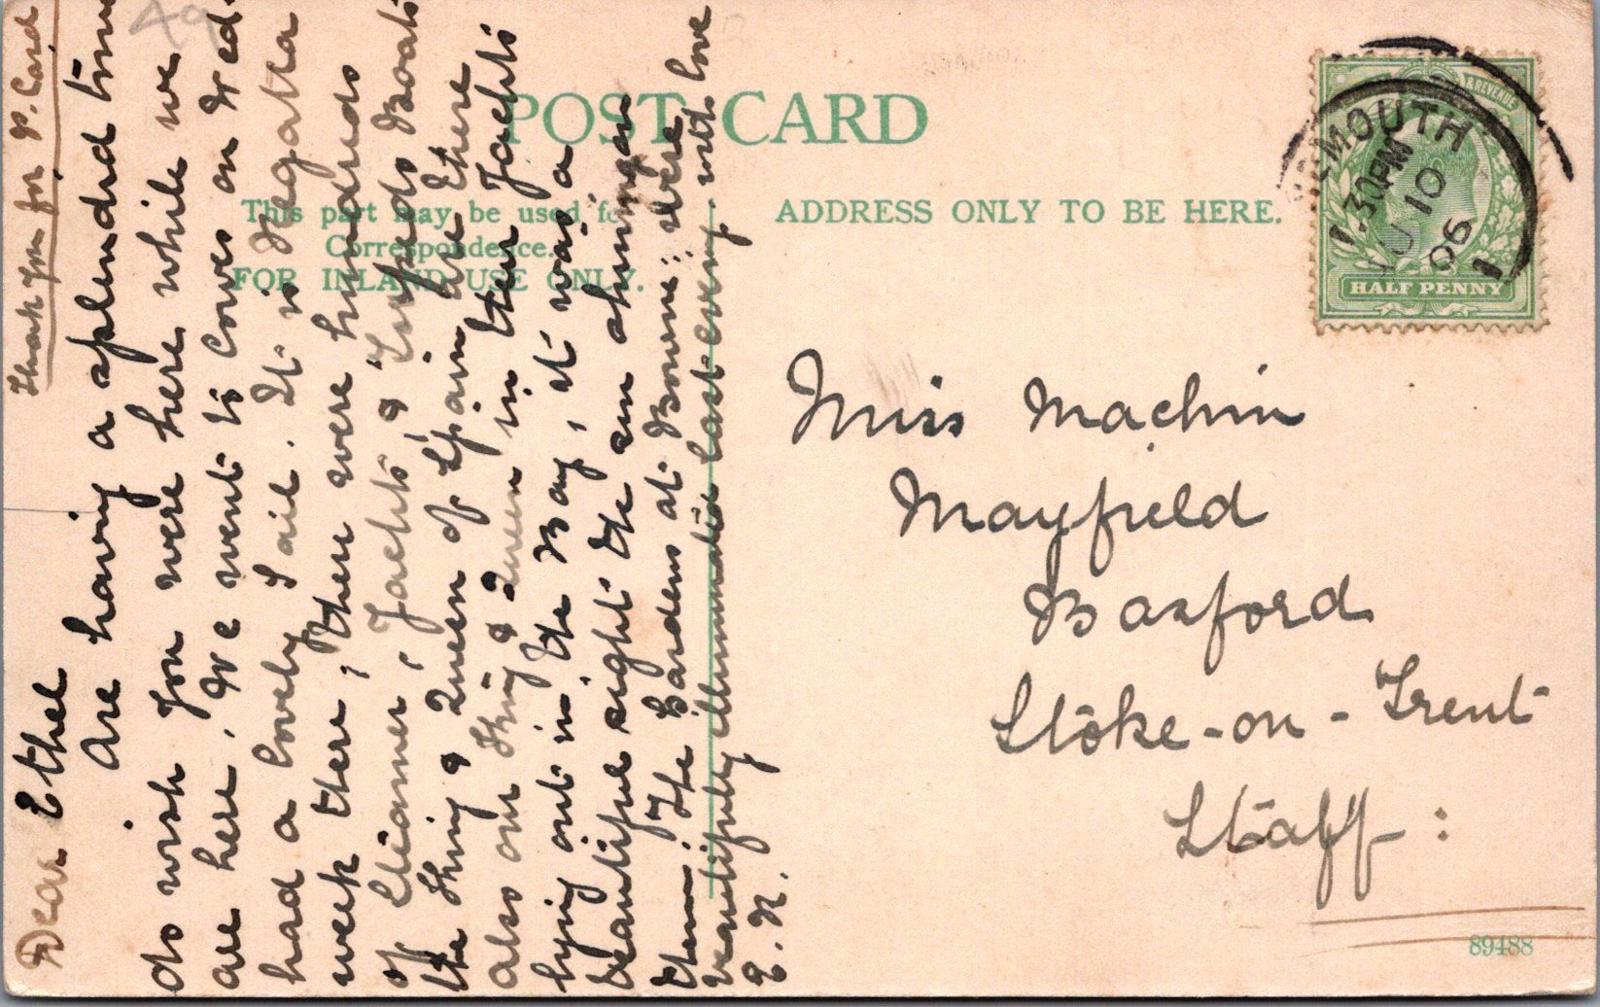 POST CARD
This part may be used for
Correspondence.
FOR INLAND USE ONLY.
ADDRESS ONLY TO BE HERE.
MOUTH
1.30PM
10
06
& REVENUE
HALF PENNY
49
Thank you for P. Card
Dear Ethel
Are having a splendid time
do wish you were here while we
are here. We went to Cowes on Wed-
had a lovely sail. It is Regatta
week there, there were hundreds
of steamers, Yachts, & Torpedo Boats
the King & Queen of Spain are there
also our King & Queen in their Yachts
lying out in the Bay, it was a
beautiful sight the sun shining on
them. The Gardens at Bourne: were
beautifully illuminated last eveng. with love
E. N.
Miss Machin
Mayfield
Basford
Stoke-on-Trent
Staff:
89488